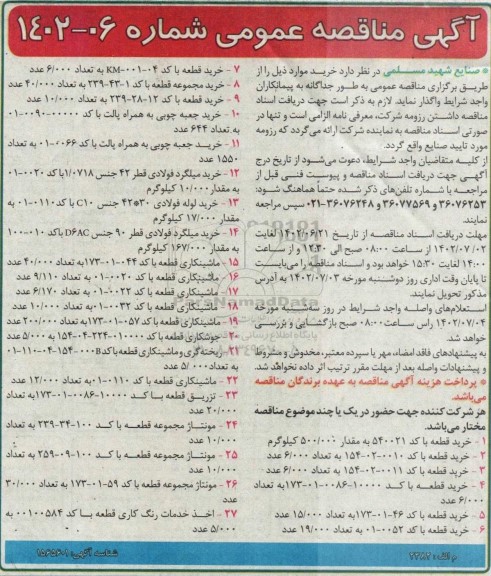 آگهی مناقصه عمومی شماره ۰۶-۱۴۰۲
* صنایع شهید مسلمی در نظر دارد خرید موارد ذیل را از
طریق برگزاری مناقصه عمومی به طور جداگانه به پیمانکاران
واجد شرایط واگذار نماید. لازم به ذکر است جهت دریافت اسناد
مناقصه داشتن رزومه شرکت، معرفی نامه الزامی است و تنها در
صورتی اسناد مناقصه به نماینده شرکت ارائه می‌گردد که رزومه
مورد تایید صنایع واقع گردد.
از کلیه متقاضیان واجد شرایط، دعوت می‌شود از تاریخ درج
آگهی جهت دریافت اسناد مناقصه و پیوست فنی قبل از
مراجعه با شماره تلفن‌های ذکر شده حتماً هماهنگ شود:
۳۶۰۷۶۲۵۳ و ۳۶۰۷۷۵۶۹ و ۳۶۰۷۶۲۴۸-۰۲۱ سپس مراجعه
نمایند.
مهلت دریافت اسناد مناقصه از تاریخ ۱۴۰۲/۰۶/۲۱ لغایت
۱۴۰۲/۰۷/۰۲ از ساعت ۰۸:۰۰ صبح الی ۱۲:۳۰ و از ساعت
۱۴:۰۰ لغایت ۱۵:۳۰ خواهد بود و اسناد مناقصه را می‌بایست
تا پایان وقت اداری روز دوشنبه مورخه ۱۴۰۲/۰۷/۰۳ به آدرس
مذکور تحویل نمایند.
استعلام‌های واصله واجد شرایط در روز سه‌شنبه مورخه
۱۴۰۲/۰۷/۰۴ راس ساعت ۰۸:۰۰ صبح بازگشایی و بررسی
خواهد شد.
به پیشنهادهای فاقد امضاء، مهر یا سپرده معتبر، مخدوش و مشروط
و پیشنهادات واصله بعد از مهلت مقرر ترتیب اثر داده نخواهد شد.
* پرداخت هزینه آگهی مناقصه به عهده برندگان مناقصه
می‌باشد.
هر شرکت کننده جهت حضور در یک یا چند موضوع مناقصه
مختار می‌باشد.
۱ - خرید قطعه با کد ۵۴۰۰۲۱ به مقدار ۵۰۰/۰۰۰ کیلوگرم
۲ - خرید قطعه با کد ۰۰۱۰-۰۲-۱۵۴ به تعداد ۶/۰۰۰ عدد
۳ - خرید قطعه با کد ۰۰۱۱-۰۲-۱۵۴ به تعداد ۶/۰۰۰ عدد
۴ - خرید قطعه با کد ۱۰۰۰۰-۰۰۸۶-۰۱-۱۷۳ به تعداد
۶/۰۰۰ عدد
۵ - خرید قطعه با کد ۴۶-۰۰۱-۱۷۳ به تعداد ۱۵/۰۰۰ عدد
۶ - خرید قطعه با کد ۰۰۵۲-۰۱ به تعداد ۱۹/۰۰۰ عدد
۷ - خرید قطعه با کد ۰۴-۰۰۱-KM به تعداد ۶/۰۰۰ عدد
۸ - خرید مجموعه قطعه با کد ۱-۴۳-۲۳۹ به تعداد ۴۰/۰۰۰ عدد
۹ - خرید قطعه با کد ۱۲-۲۸-۲۳۹ به تعداد ۱۰/۰۰۰ عدد
۱۰ - خرید جعبه چوبی به همراه پالت با کد ۰۰۰۰۰-۰۰۹۰-۰۱
به تعداد ۶۴۴ عدد
۱۱ - خرید جعبه چوبی به همراه پالت با کد ۰۰۶۶-۰۱ به تعداد
۱۵۵۰ عدد
۱۲ - خرید میلگرد فولادی قطر ۴۲ جنس ۱/۰۷۱۸ با کد ۰۰۲۰-۰۱
به مقدار ۱۰/۰۰۰ کیلوگرم
۱۳ - خرید لوله فولادی ۳۰*۴۲ جنس C۱۰ با کد ۰۱۱۰-۰۱ به
مقدار ۱۷/۰۰۰ کیلوگرم
۱۴ - خرید میلگرد فولادی قطر ۹۰ جنس D۶AC با کد ۰۰۱۰-۱۰۰
به مقدار ۱۶۷/۰۰۰ کیلوگرم
۱۵ - ماشینکاری قطعه با کد ۰۴۴-۰۱-۱۷۳ به تعداد ۴۰/۰۰۰ عدد
۱۶ - ماشینکاری قطعه با کد ۰۰۲۰-۰۱ به تعداد ۹/۱۱۰ عدد
۱۷ - ماشینکاری قطعه با کد ۰۰۲۲-۰۱ به تعداد ۶/۱۷۰ عدد
۱۸ - ماشینکاری قطعه با کد ۰۰۳۲-۰۱ به تعداد ۱۰/۰۰۰ عدد
۱۹ - ماشینکاری قطعه با کد ۰۵۷-۰۰۱-۱۷۳ به تعداد ۲۰۰/۰۰۰ عدد
۲۰ - جوشکاری قطعه با کد ۱۰۰۰۰-۲۲۴-۰۴-۱۵۴ به تعداد ۵/۰۰۰ عدد
۲۱ - ریخته‌گری و ماشینکاری قطعه با کد B۰۰-۱۵۴-۰۴-۱۱۰-۰۱
به تعداد ۵/۰۰۰ عدد
۲۲ - ماشینکاری قطعه با کد ۰۱۱۰-۰۱ به تعداد ۱۲/۰۰۰ عدد
۲۳ - تزریق قطعه با کد ۱۰۰۰۰-۰۰۸۶-۰۱-۱۷۳ به تعداد
۲۰/۰۰۰ عدد
۲۴ - مونتاژ مجموعه قطعه با کد ۱۰۰-۳۴-۲۳۹ به تعداد
۱۰/۰۰۰ عدد
۲۵ - مونتاژ مجموعه قطعه با کد ۱۰۰-۰۹-۲۵۹ به تعداد
۱۰/۰۰۰ عدد
۲۶ - مونتاژ مجموعه قطعه با کد ۵۹-۰۱-۱۷۳ به تعداد ۳۰/۰۰۰
عدد
۲۷ - اخذ خدمات رنگ کاری قطعه با کد ۰۰۱۰۰۵۸۴ به
تعداد ۵/۰۰۰ عدد
شناسه آگهی: ۱۵۶۵۶۰۱
م الف: ۲۲۸۲